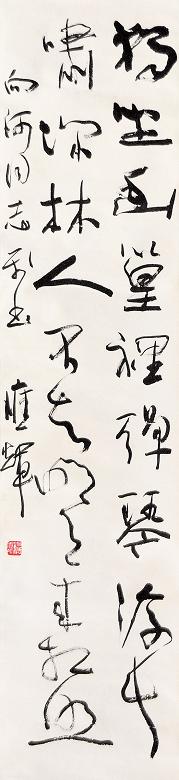 獨坐幽篁裡彈琴復长
嘯深林人不知明月来相照
向河同志 應輝